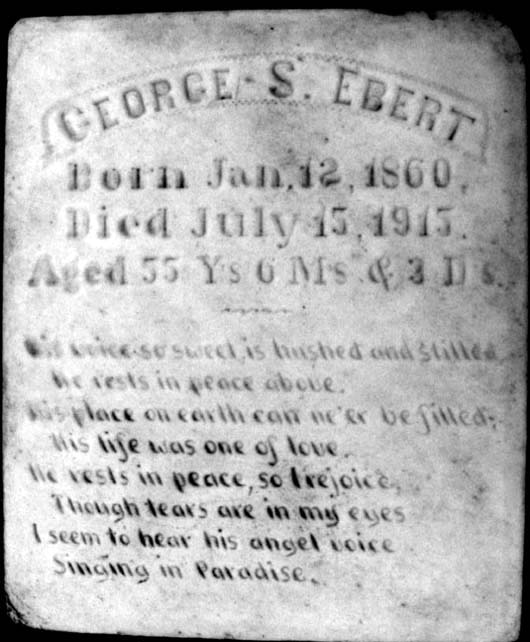 GEORGE S. EBERT
Born Jan. 12, 1860.
Died July 15, 1915.
Aged 55 Ys 6 Ms & 3 Ds.
His voice so sweet, is hushed and stilled
He rests in peace above.
His place on earth can ne'er be filled;
His life was one of love.
He rests in peace, so I rejoice,
Though tears are in my eyes
I seem to hear his angel voice
Singing in Paradise.